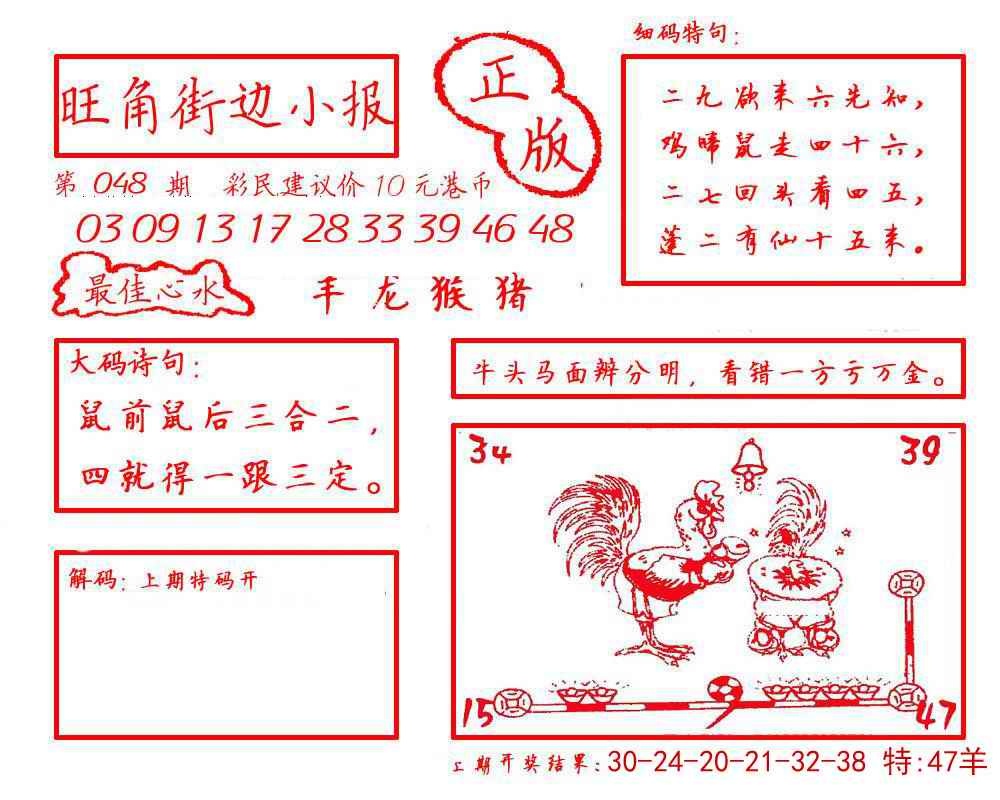 细码特句：
旺角街边小报
正
版
二九欲来六先知，
鸡啼鼠走四十六，
二七回头看四五，
蓬二有仙十五来。
第 048 期 彩民建议价10元港币
03 09 13 17 28 33 39 46 48
最佳心水
羊龙猴猪
大码诗句：
鼠前鼠后三合二，
四就得一跟三定。
牛头马面辨分明，看错一方亏万金。
34
39
8
15
47
解码：上期特码开
上期开奖结果：30-24-20-21-32-38 特:47羊